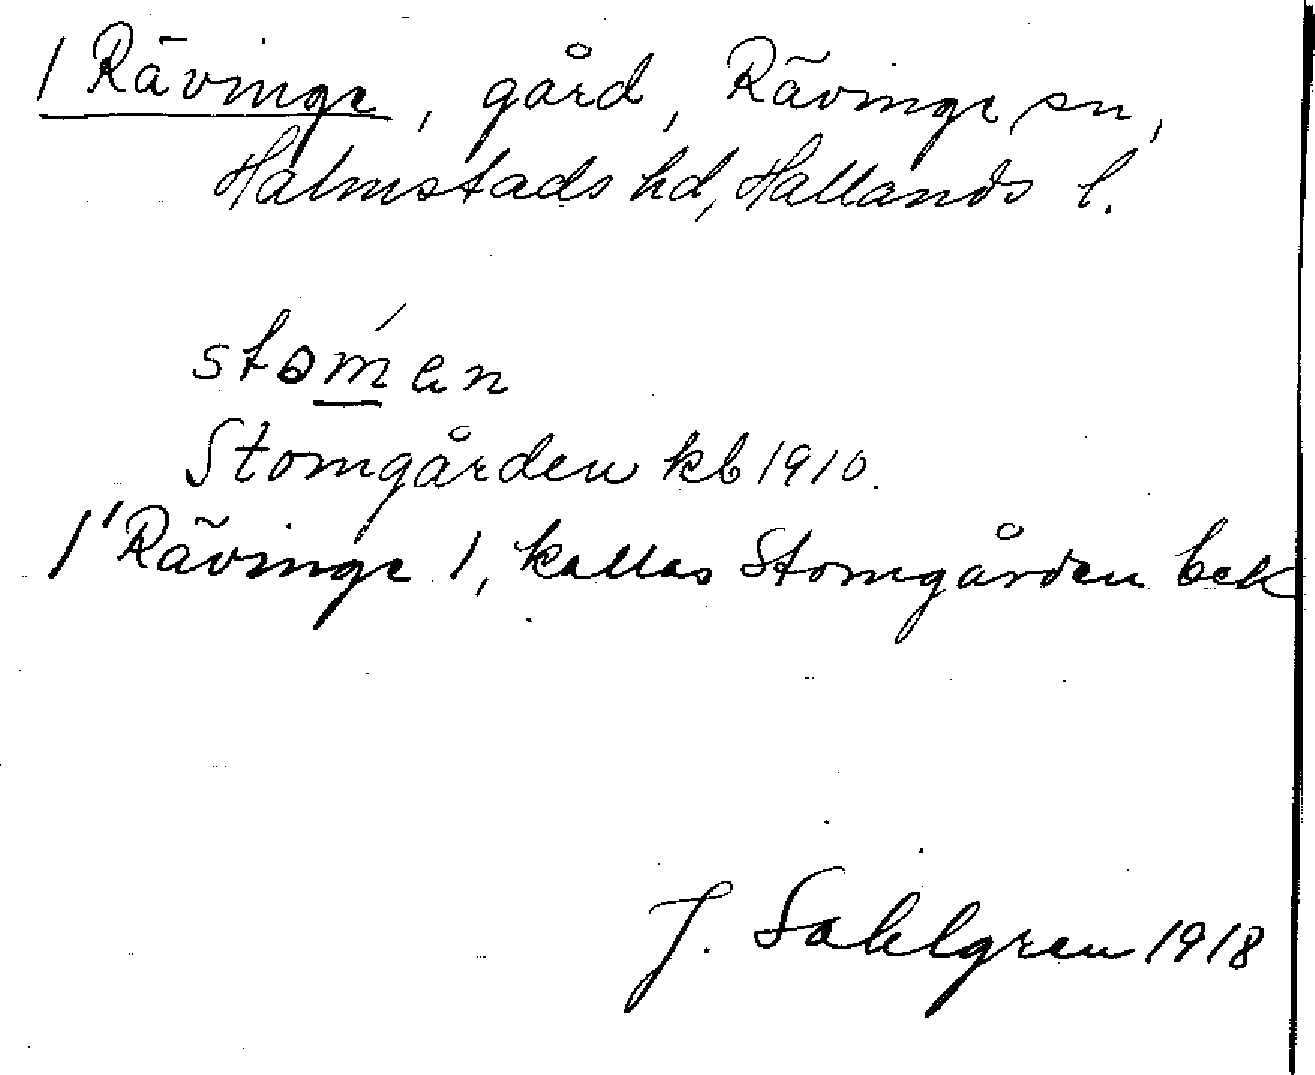 1 Rävinge, gård, Rävinge sn,
Halmstads hd, Hallands l.
stom̲´en
Stomgården kb 1910.
1' Rävinge 1, kallas Stomgården bek
J. Sahlgren 1918